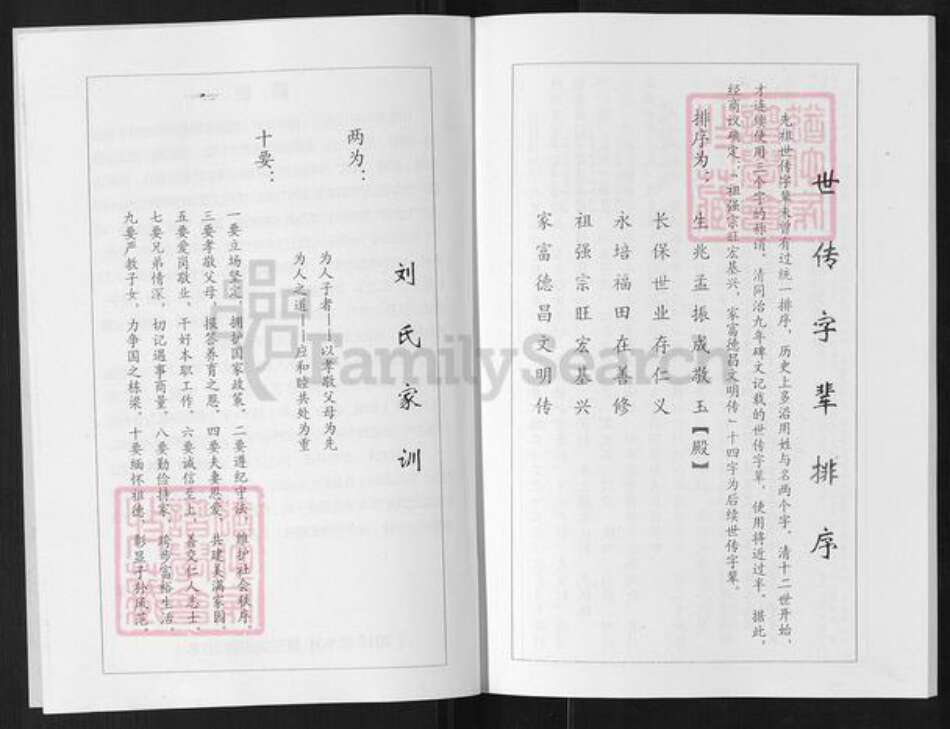 世传字辈排序
先祖世传字辈未曾有过统一排序，历史上多沿用姓与名两个字，清十二世开始，
才连续使用三个字的称谓，清同治九年碑文记载的世传字辈，使用将近过半，据此，
经商议确定：“祖强宗旺宏基兴，家富德昌文明传”十四字为后续世传字辈。
排序为：
生兆孟振成敬玉【殿】
长保世业存仁义
永培福田在善修
祖强宗旺宏基兴
家富德昌文明传
刘氏家训
两为：
为人子者——以孝敬父母为先
为人之道——应和睦共处为重
十要：
一要立场坚定，拥护国家政策。二要遵纪守法，维护社会秩序。
三要孝敬父母，报答养育之恩。四要夫妻恩爱，共建美满家园。
五要爱岗敬业，干好本职工作。六要诚信至上，善交仁人志士。
七要兄弟情深，切记遇事商量。八要勤俭持家，跨步富裕生活。
九要严教子女，力争国之栋梁。十要缅怀祖德，彰显子孙风范。
FamilySearch